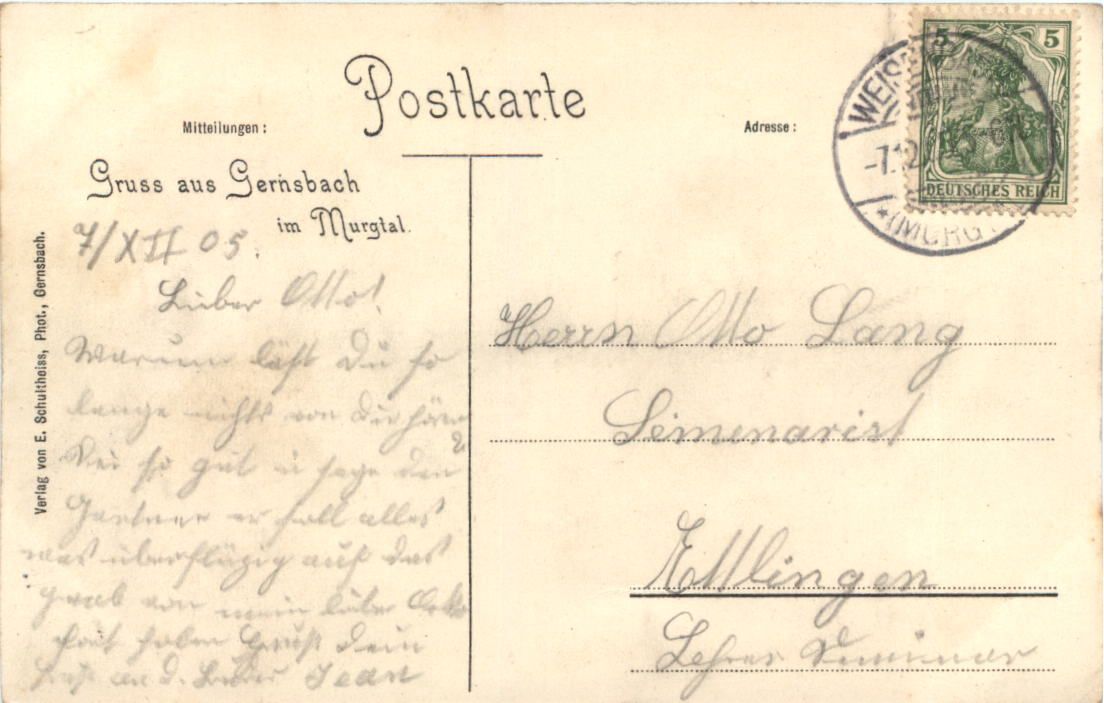 Postkarte
Mitteilungen:
Adresse:
Gruss aus Gernsbach
im Murgtal.
7/XII 05.
Lieber Otto!
Warum läßt Du so
lange nichts von Dir hören
?
Sei so gut u sage dem
Gärtner er soll alles
was überflüßig auf das
Grab von mein lieber
haben Gruß Dein
Gruß an d. Brüder Jean
Verlag von E. Schultheiss, Phot., Gernsbach.
5 5
DEUTSCHES REICH
WEISEN
-7.12
*(MURG
Herrn Otto Lang
Seminarist
Ettlingen
Lehrer Seminar